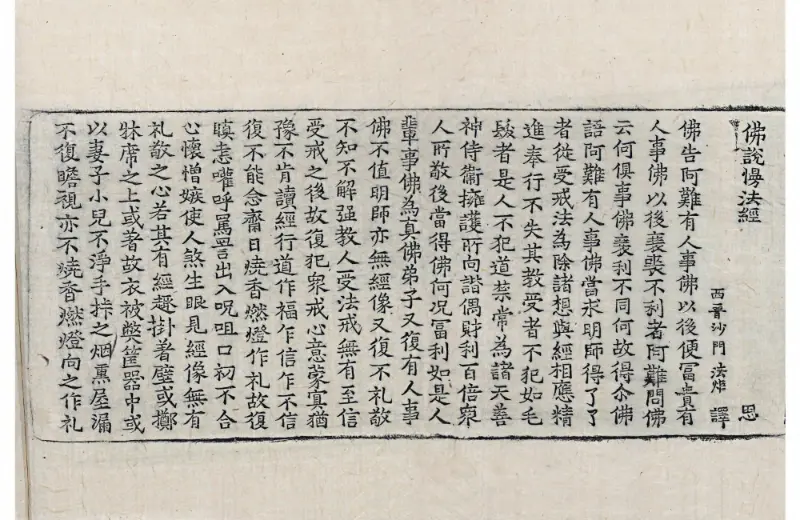 佛說慢法經
思
西晉沙門法炬 譯
佛告阿難有人事佛以後便冨貴有
人事佛以後衰喪不利者阿難問佛
云何俱事佛衰利不同何故得尒佛
語阿難有人事佛當求明師得了了
者從受戒法為除諸想與經相應精
進奉行不失其教受者不犯如毛
髮者是人不犯道禁常為諸天善
神侍衛擁護所向諧偶財利百倍衆
人所敬後當得佛何況冨利如是人
輩事佛為真佛弟子又復有人事
佛不值明師亦無經像又復不礼敬
不知不解强教人受法戒無有至信
受戒之後故復犯衆戒心意蒙冥猶
豫不肯讀經行道作福乍信乍不信
復不能念齋日燒香燃燈作礼故復
瞋恚嚾呼罵詈出入呪咀口初不合
心懷憎嫉使人煞生眼見經像無有
礼敬之心若其有經趣掛著壁或擲
牀席之上或著故衣被弊篋器中或
以妻子小兒不淨手捽之烟熏屋漏
不復瞻視亦不燒香燃燈向之作礼